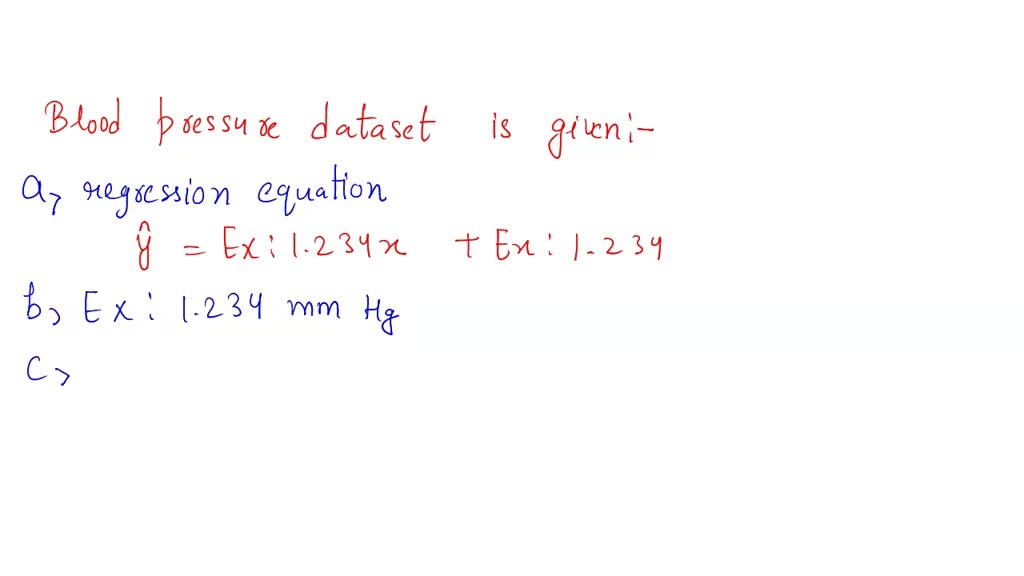 Blood pressure dataset is given:-
a, regression equation
ŷ = Ex: 1.234x + Ex: 1.234
b, Ex: 1.234 mm Hg
c,